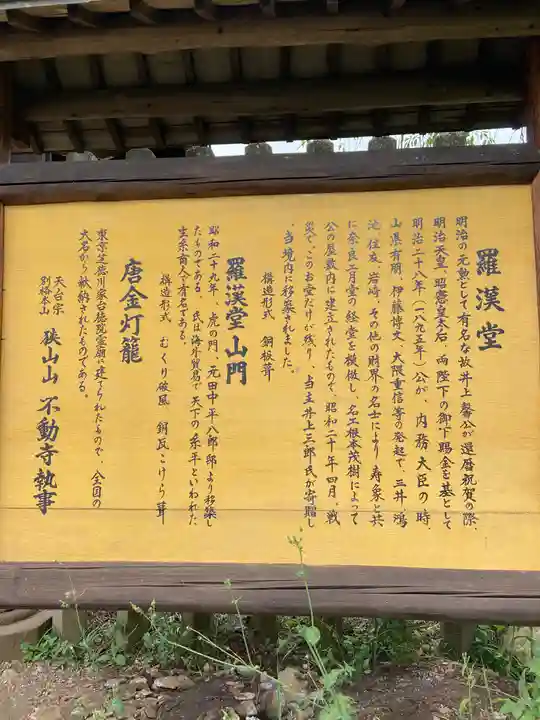 羅漢堂
明治の元勲として有名な故井上馨公が還暦祝賀の際、
明治天皇、昭憲皇太后、両陛下の御下賜金を基として
明治二十八年(一八九五年)公が、内務大臣の時、
山県有朋、伊藤博文、大隈重信等の発起で、三井、鴻
池、住友、岩崎、その他の財界の名士により寿象と共
に奈良二月堂の経堂を模倣し、名工根本茂樹によって
公の屋敷内に建立されたもので、昭和二十年四月、戦
災で、このお堂だけが残り、当主井上三郎氏が寄贈し
、当境内に移築されました。
構造形式 銅板葺
羅漢堂山門
昭和二十九年、虎の門、元田中平八郎邸より移築し
たものである。氏は海外貿易で天下の糸平といわれた
生糸商人で有名である。
構造形式 むくり破風 銅瓦こけら葺
唐金灯籠
東京芝徳川家台徳院霊廟に建てられたもので、全国の
大名から献納されたものである。
天台宗
別格本山 狭山山 不動寺執事